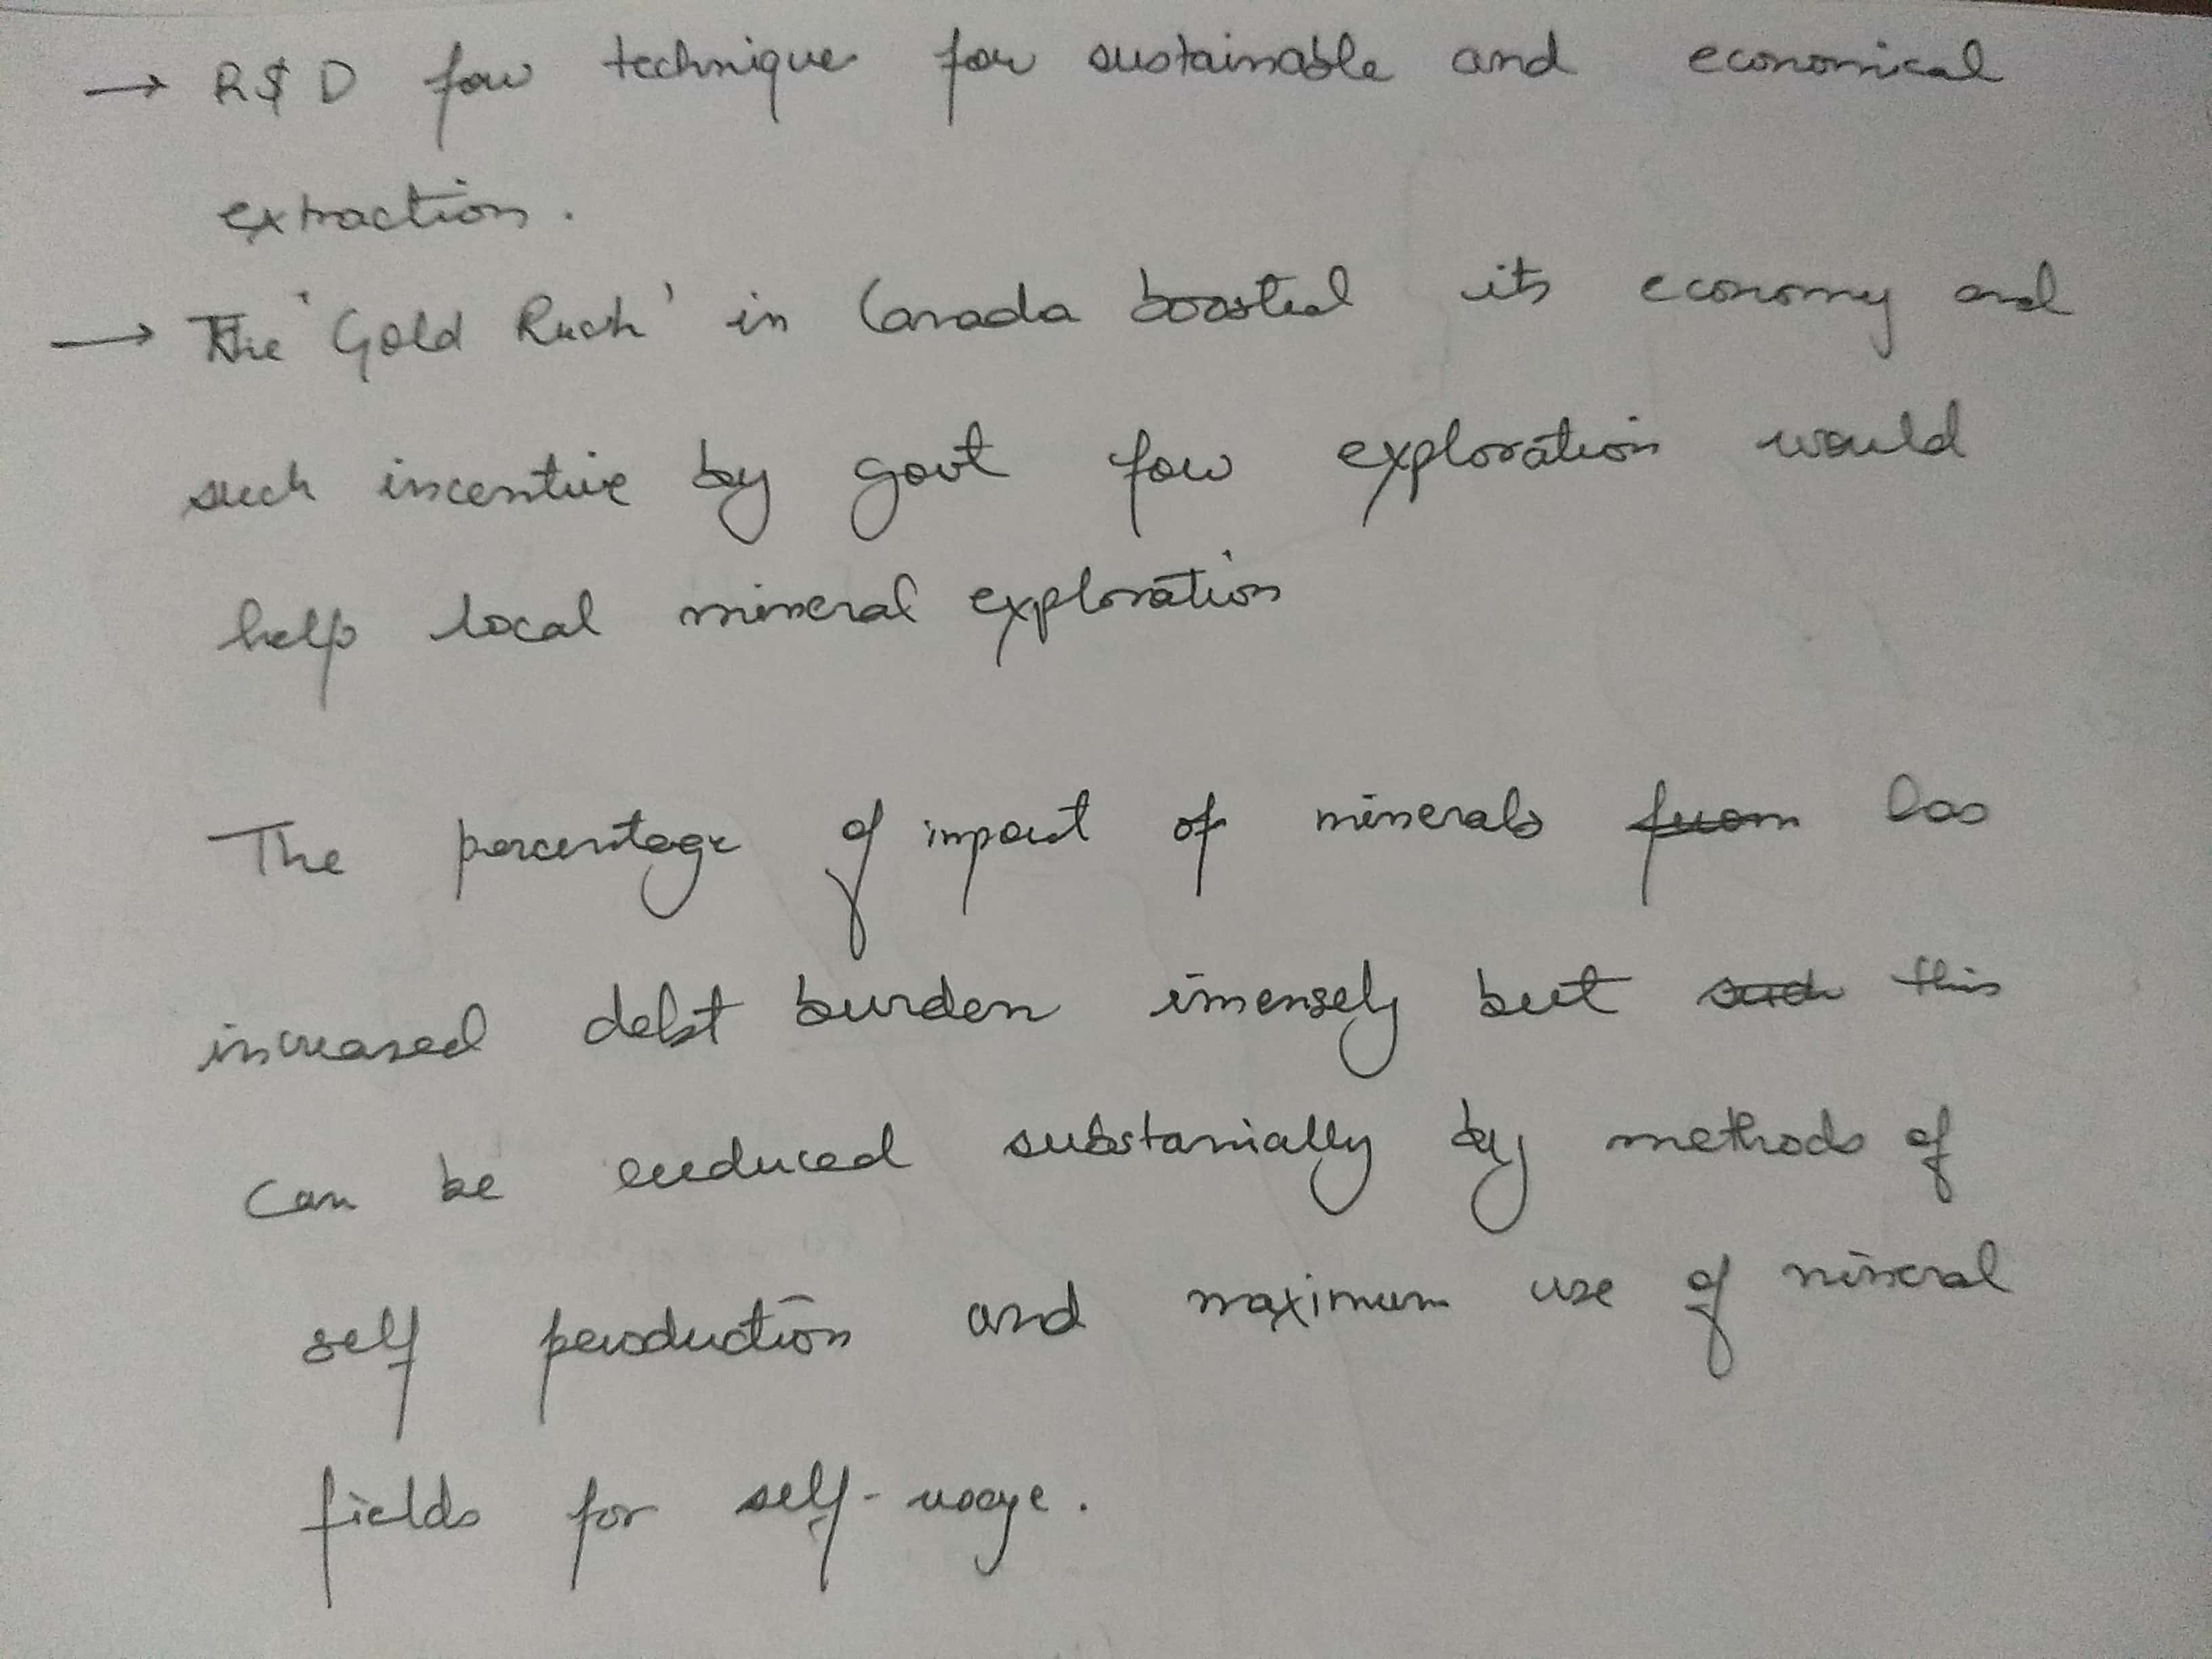 → R&D for technique for sustainable and economical
extraction.
→ The 'Gold Rush' in Canada boosted its economy and
such incentive by govt for exploration would
help local mineral exploration
The percentage of import of minerals ~~from~~ has
increased debt burden imensely but ~~such~~ this
can be reduced substanially by methods of
self production and maximum use of mineral
fields for self-usage.